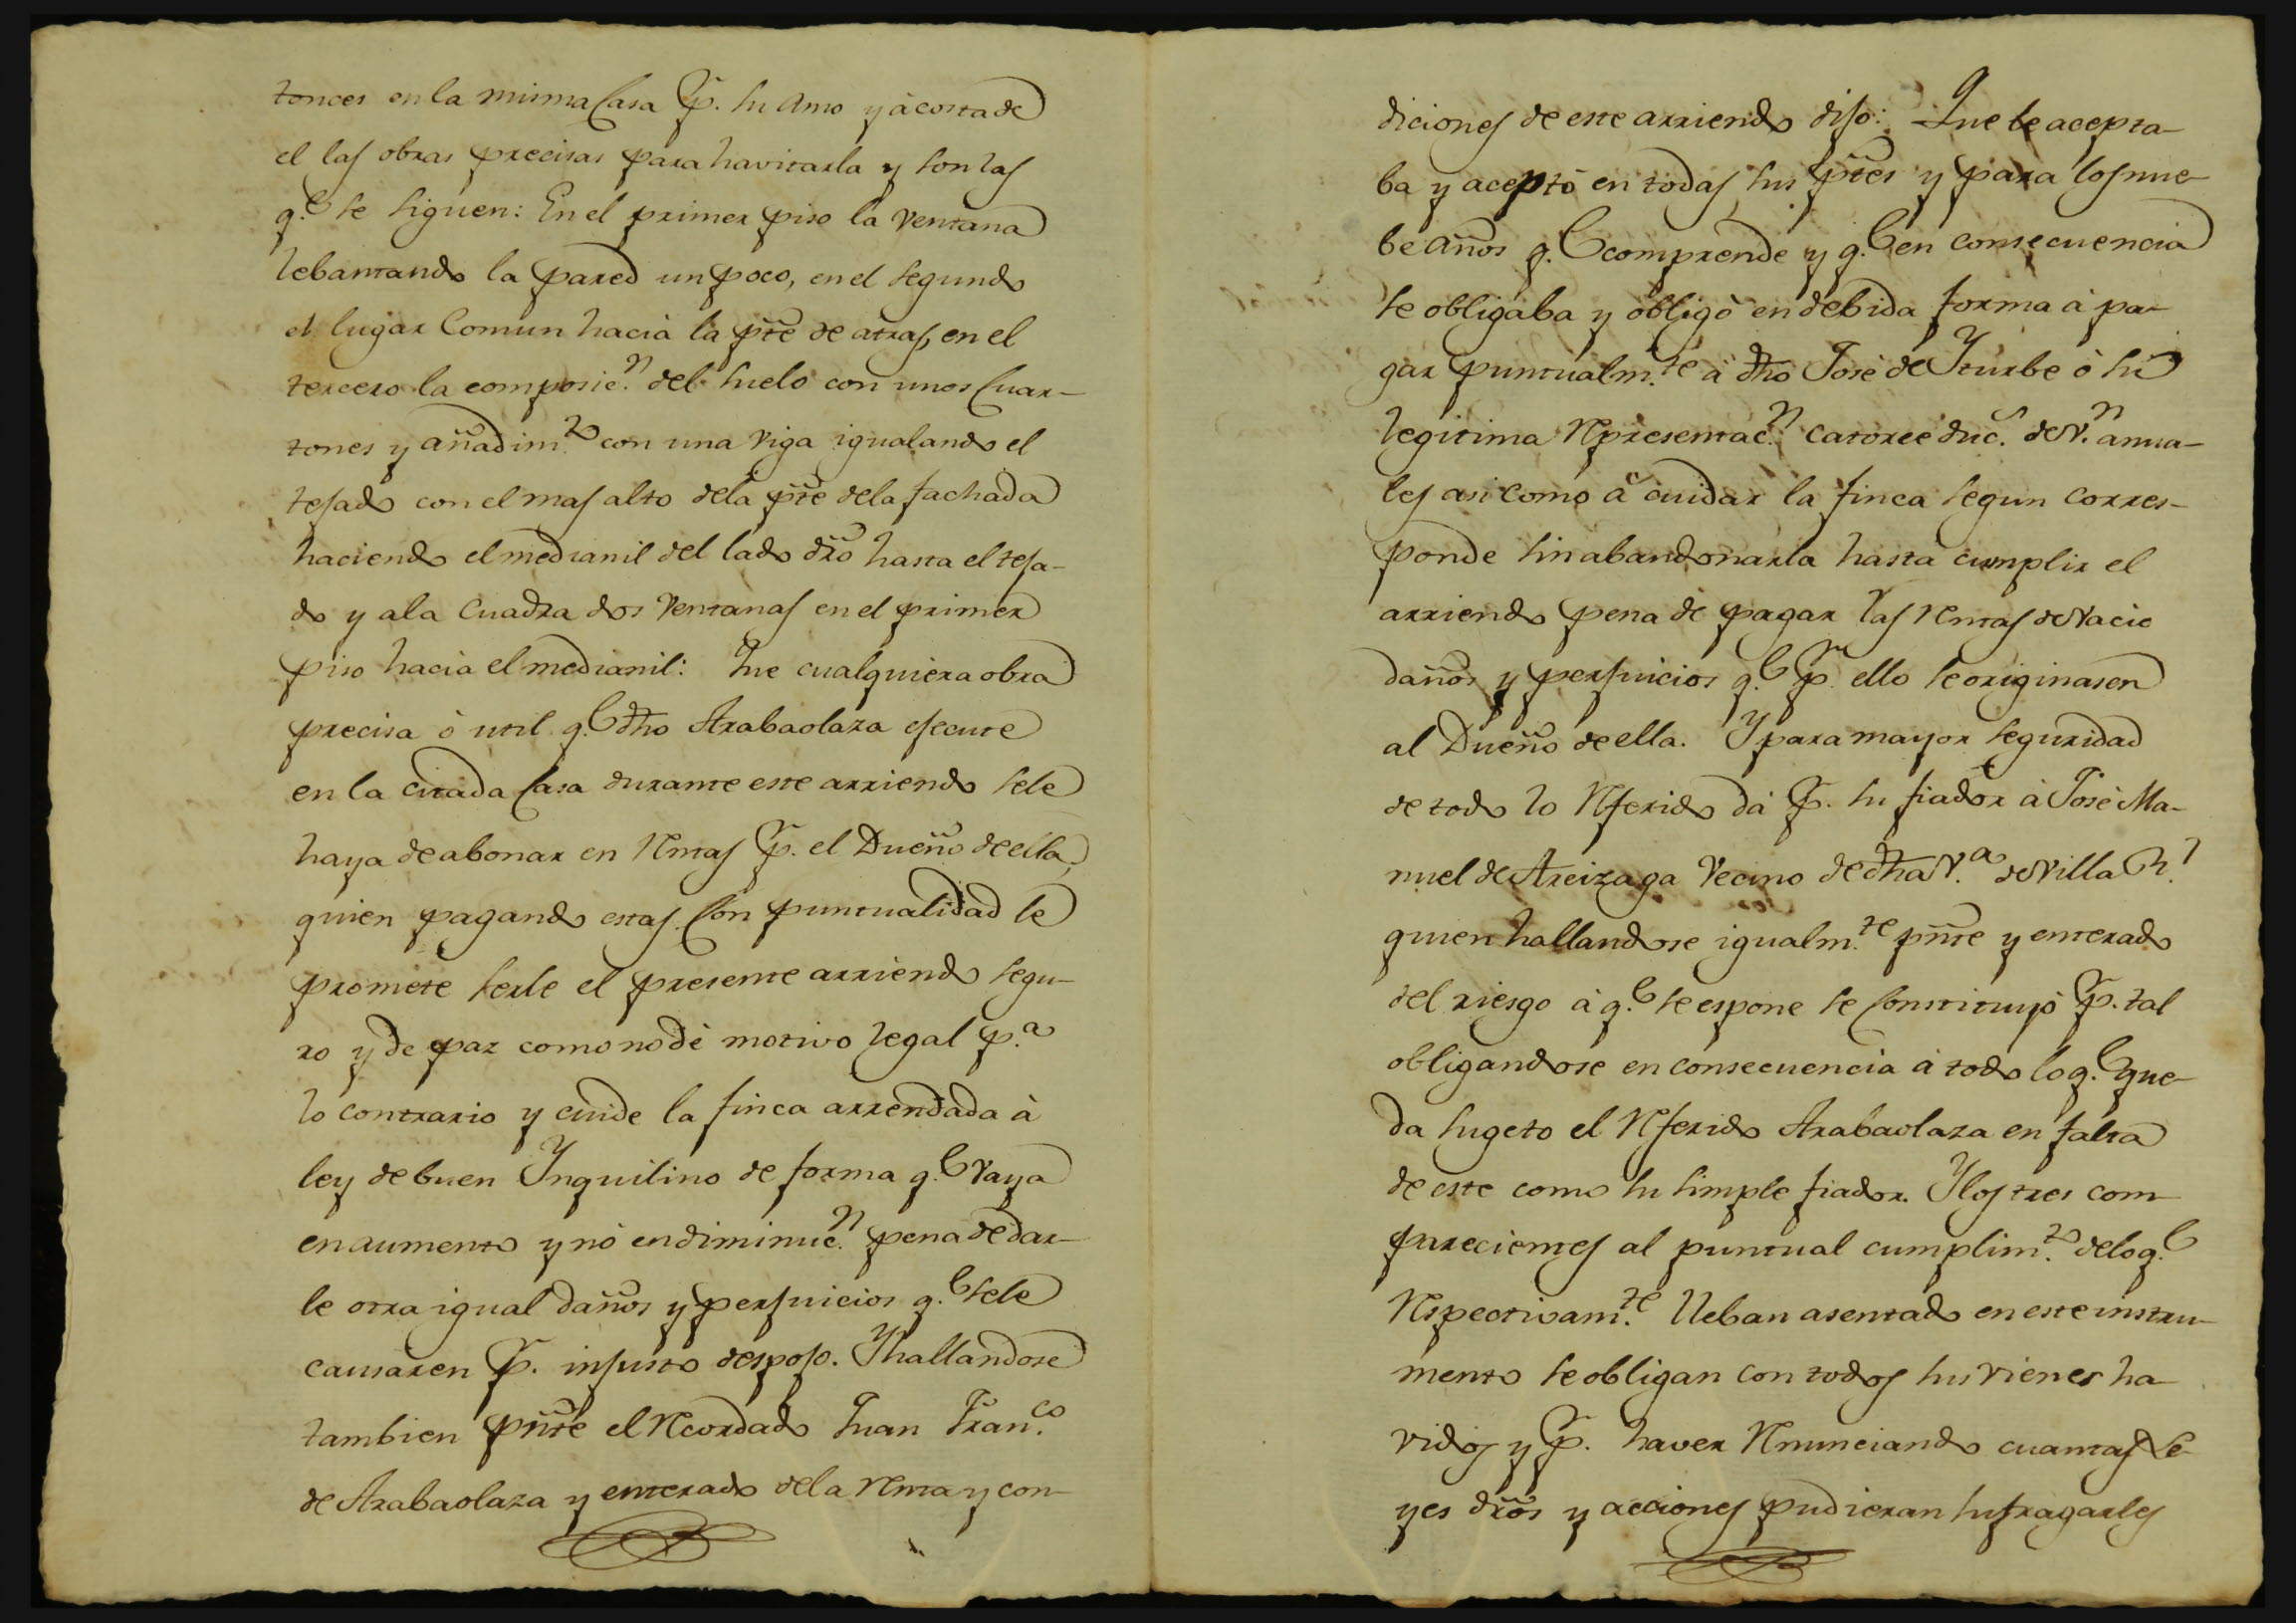 tonces en la misma Casa p.r su Amo y à costa de
el las obras precisas para havitarla y son las
q.e se siguen: En el primer piso la ventana
lebantando la pared un poco, en el segundo
el lugar Comun hacia la pte de atras, en el
tercero la composic.n del suelo con unos Cuar-
tones y añadim.to con una viga igualando el
tejado con el mas alto de la pte de la fachada
haciendo el medianil del lado dro hasta el teja-
do y a la Cuadra dos ventanas en el primer
piso hacia el medianil: Que cualquiera obra
precisa ò util q.e dho Arabaolaza ejecute
en la citada Casa durante este arriendo se le
haya de abonar en Rentas p.r el Dueño de ella,
quien pagando estas Con puntualidad le
promete serle el presente arriendo segu-
ro y de paz como no dè motivo legal p.a
lo contrario y cuide la finca arrendada à
ley de buen Ynquilino de forma q.e vaya
en aumento y nò en diminuc.n pena de dar-
le otra igual daños y perjuicios q.e se le
causaren p.r injusto despojo. Y hallandose
tambien pnte el Recordado Juan Fran.co
de Arabaolaza y enterado de la Renta y con-
diciones de este arriendo dijo: Que le acepta-
ba y aceptò en todas sus ptes y para los nue-
be años q.e comprende y q.e en consecuencia
se obligaba y obligò en debida forma à pa-
gar puntualm.te à dho Josè de Yturbe ò su
legitima Representac.n catorce duc.s de v.n anua-
les asi como à cuidar la finca segun corres-
ponde sin abandonarla hasta cumplir el
arriendo pena de pagar las rentas de vacio
daños y perjuicios q.e p.r ello se originasen
al Dueño de ella. Y para mayor seguridad
de todo lo Referido dà p.r su fiador à Josè Ma-
nuel de Areizaga vecino de dha V.a de Villa R.l
quien hallandose igualm.te pnte y enterado
del riesgo à q.e se espone se Constituyò p.r tal
obligandose en consecuencia à todo lo q.e que-
da sugeto el Referido Arabaolaza en falta
de este como su simple fiador. Y los tres com-
parecientes al puntual cumplim.to de lo q.e
Respectivam.te lleban asentado en este instru-
mento se obligan con todos sus vienes ha-
vidos y p.r haver Renunciando cuantas le-
yes dros y acciones pudieran sufragarles